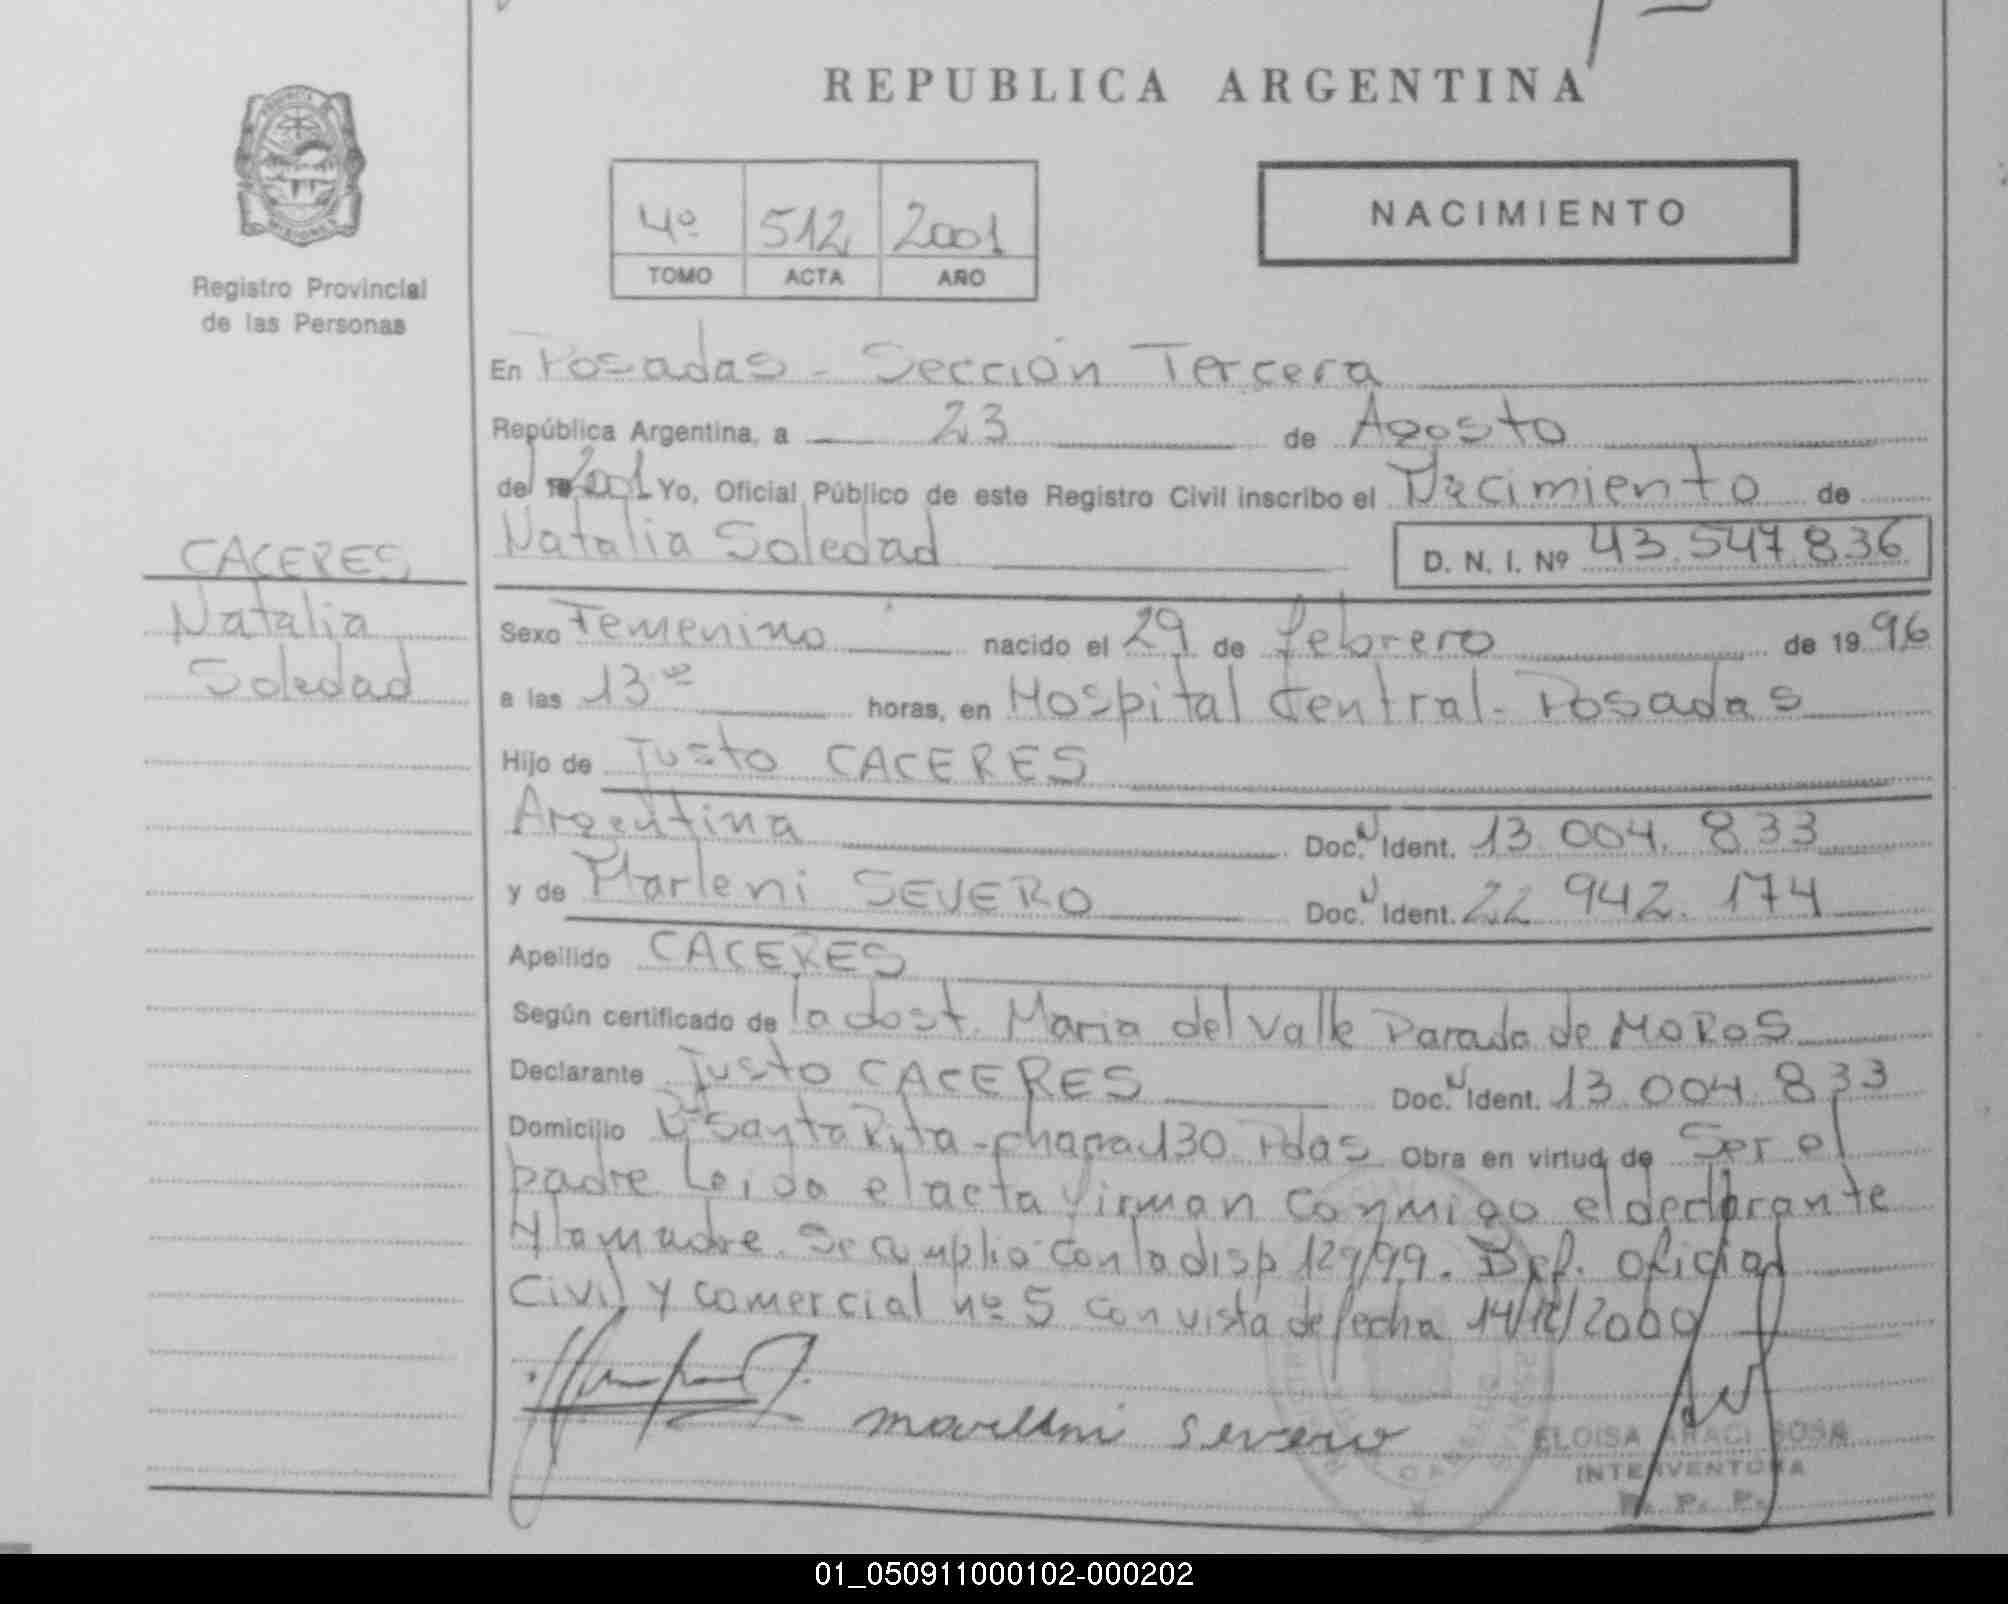 REPUBLICA ARGENTINA
4º 512 2001
TOMO ACTA AÑO
NACIMIENTO
Registro Provincial
de las Personas
CACERES
Natalia
Soledad
En Posadas - Sección Tercera
República Argentina, a 23 de Agosto
del 2001 Yo, Oficial Público de este Registro Civil inscribo el Nacimiento de
Natalia Soledad D. N. I. Nº 43.547.836
Sexo Femenino nacido el 29 de febrero de 19 96
a las 13 horas, en Hospital Central - Posadas
Hijo de Justo CACERES
Argentina Doc. N Ident. 13.004.833
y de Marleni SEVERO Doc. N Ident. 22.942.174
Apellido CACERES
Según certificado de la obst. Maria del Valle Parada de MOROS
Declarante Justo CACERES Doc. N Ident. 13.004.833
Domicilio Bº Santa Rita - chacra 130 Pdas Obra en virtud de Ser el
padre Leida el acta firman conmigo el declarante
y la madre. Se cumplio con la disp 129/99. Def. oficial
Civil y comercial nº 5 con vista de fecha 14/12/2000
marleni severo
ELOISA ARACI SOSA
INTERVENTORA
R. P. P.
01_050911000102-000202